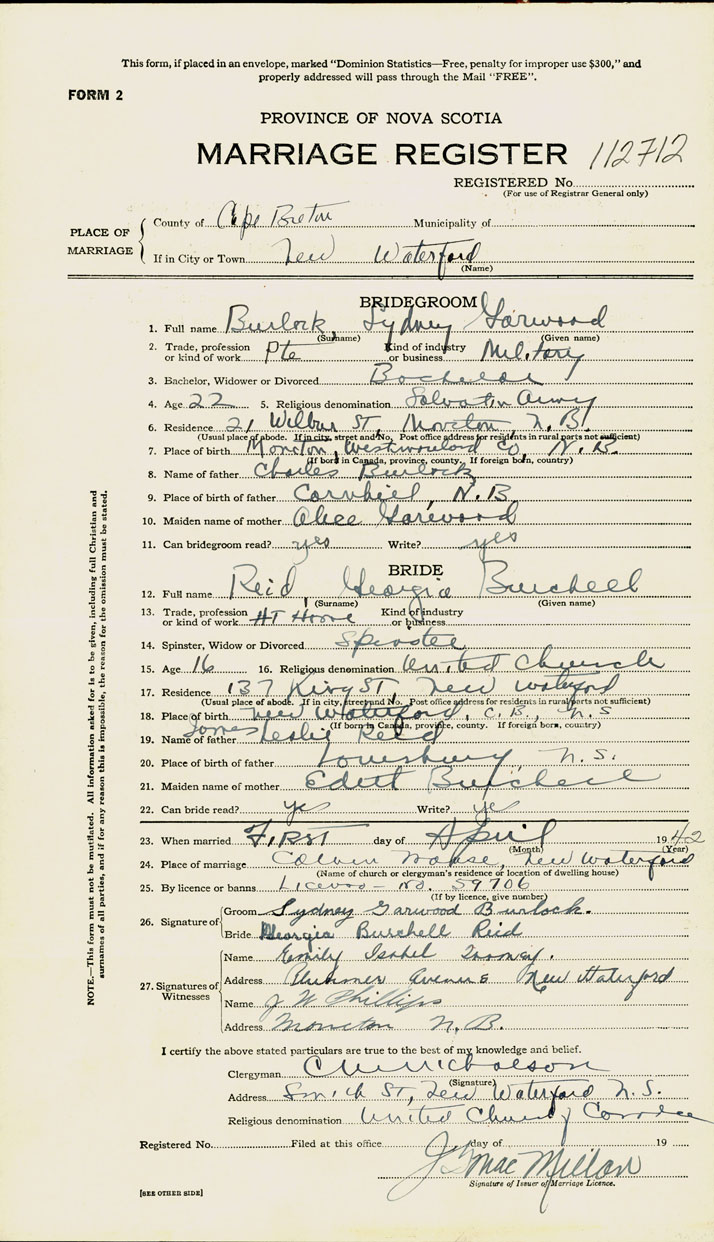 This form, if placed in an envelope, marked "Dominion Statistics—Free, penalty for improper use $300," and
properly addressed will pass through the Mail "FREE".
FORM 2
PROVINCE OF NOVA SCOTIA
MARRIAGE REGISTER 112712
REGISTERED No.
(For use of Registrar General only)
PLACE OF MARRIAGE
County of Cape Breton Municipality of
If in City or Town New Waterford
(Name)
BRIDEGROOM
1. Full name Burlock, Sydney Garwood
(Surname) (Given name)
2. Trade, profession or kind of work Pte Kind of industry or business Military
3. Bachelor, Widower or Divorced Bachelor
4. Age 22 5. Religious denomination Salvation Army
6. Residence 21 Wilbur St, Moncton, N.B.
(Usual place of abode. If in city, street and No. Post office address for residents in rural parts not sufficient)
7. Place of birth Moncton, Westmorland Co, N.B.
(If born in Canada, province, county. If foreign born, country)
8. Name of father Charles Burlock
9. Place of birth of father N.B.
10. Maiden name of mother Alice Garwood
11. Can bridegroom read? yes Write? yes
BRIDE
12. Full name Reid, Georgia Burchell
(Surname) (Given name)
13. Trade, profession or kind of work At Home Kind of industry or business
14. Spinster, Widow or Divorced Spinster
15. Age 16 16. Religious denomination United Church
17. Residence 137 King St, New Waterford
(Usual place of abode. If in city, street and No. Post office address for residents in rural parts not sufficient)
18. Place of birth New Waterford, C.B., N.S
(If born in Canada, province, county. If foreign born, country)
19. Name of father James Leslie Reid
20. Place of birth of father Louisburg, N.S.
21. Maiden name of mother Edith Burchell
22. Can bride read? yes Write? yes
23. When married FIRST day of April 1942
(Month) (Year)
24. Place of marriage Calvin Manse, New Waterford
(Name of church or clergyman's residence or location of dwelling house)
25. By licence or banns License - No. 59706
(If by licence, give number)
26. Signature of
Groom Sydney Garwood Burlock.
Bride Georgia Burchell Reid
27. Signatures of Witnesses
Name Emily Isabel
Address Plummer Avenue New Waterford
Name J W Phillips
Address Moncton N.B.
I certify the above stated particulars are true to the best of my knowledge and belief.
Clergyman Nicholson
(Signature)
Address Smith St, New Waterford N.S.
Religious denomination United Church of Canada
Registered No. Filed at this office day of 19
MacMillan
Signature of Issuer of Marriage Licence.
[SEE OTHER SIDE]
NOTE.—This form must not be mutilated. All information asked for is to be given, including full Christian and
surnames of all parties, and if for any reason this is impossible, the reason for the omission must be stated.